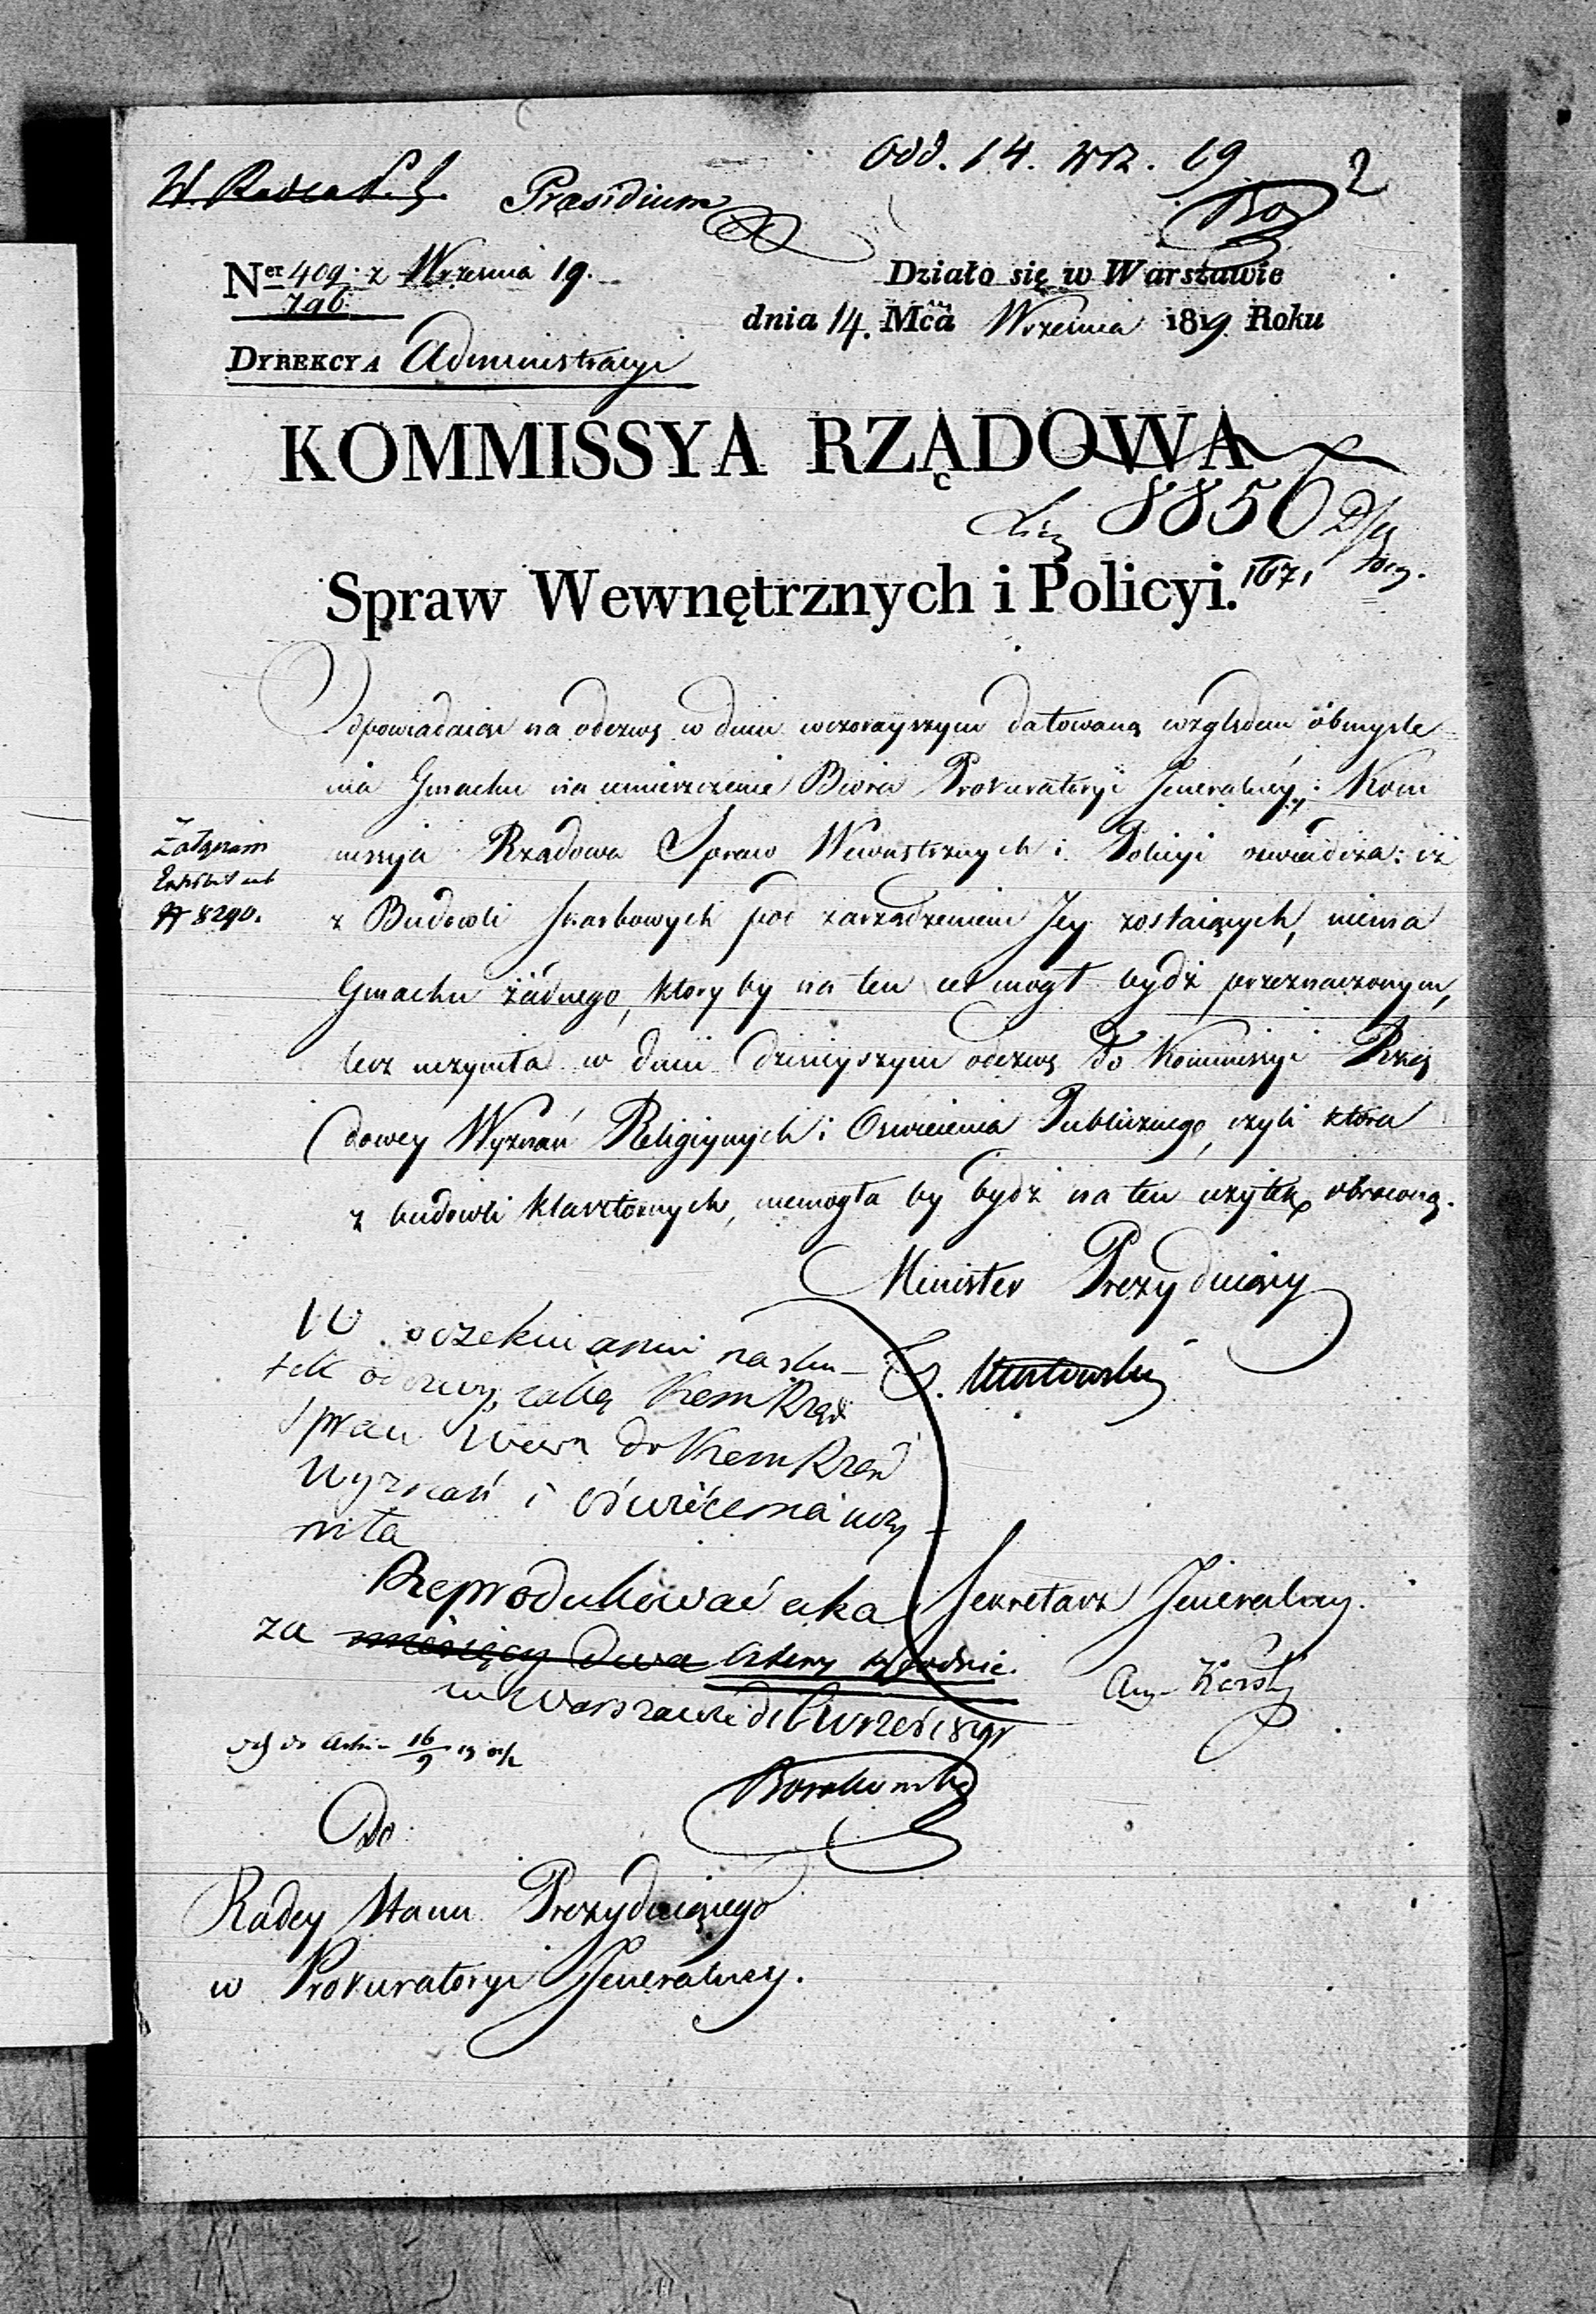 Odd. 14. wrz. 19
2
W. Radca
Præsidium
Ner 409. z Września 19.
796.
Działo się w Warszawie
dnia 14. Mca Września 1819 Roku
DYREKCYA Administracyi
KOMMISSYA RZĄDOWA
8850
Spraw Wewnętrznych i Policyi.
1671
Odpowiadaiąc na odezwę w dniu wczorayszym datowaną względem obmyśle
nia Gmachu na umieszczenie Biura Prokuratoryi Jeneralney; Kom
missyia Rządowa Spraw Wewnętrznych i Policyi oświadcza: iż
z Budowli skarbowych pod zarządzeniem Jey zostaiących, niema
Gmachu żadnego, który by na ten cel mógł bydź przeznaczonym,
lecz uczyniła w dniu dzisieyszym odezwę do Kommissyi Rzą
dowey Wyznań Religiynych i Oświecenia Publicznego, czyli która
z budowli klasztornych, niemogła by bydź na ten użytek obrócona.
Załączam
8290.
Minister Prezyduiący
W oczekiwaniu na sku–
tek odezwy, iaką Kom Rząd
Spraw Wewn do Kom Rząd
Wyznań i Oświecenia uczy–
niła
Reprodukować akta
za miesięcy dwa cztery tygodnie.
w Warszawie d 16 Wrześ 1819 r
Sekretarz Jeneralny.
16/9
Do
Radcy Stanu Prezyduiącego
w Prokuratoryi Jeneralney.